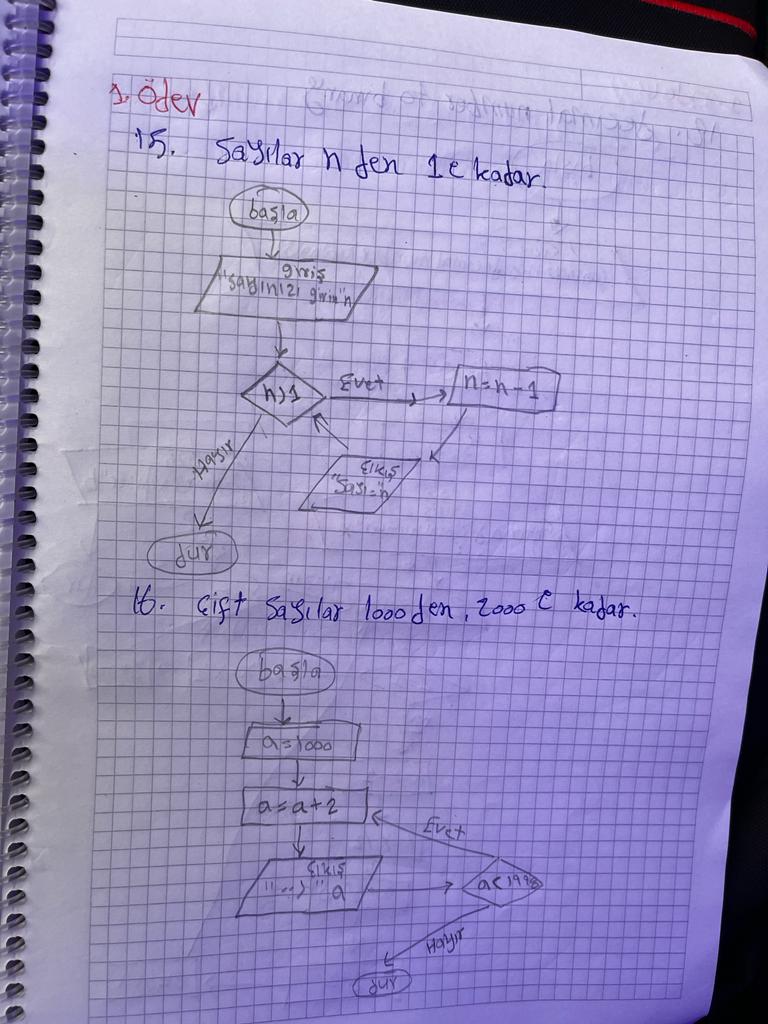 1. Ödev
15. Sayılar n den 1 e kadar.
başla
giriş
"sayınızı girin" n
n>1
Evet
n=n-1
Hayır
çıkış
"Sayı=" n
dur
16. Çift Sayılar 1000 den, 2000 e kadar.
başla
a=1000
a=a+2
Evet
çıkış
a
a<1998
Hayır
dur